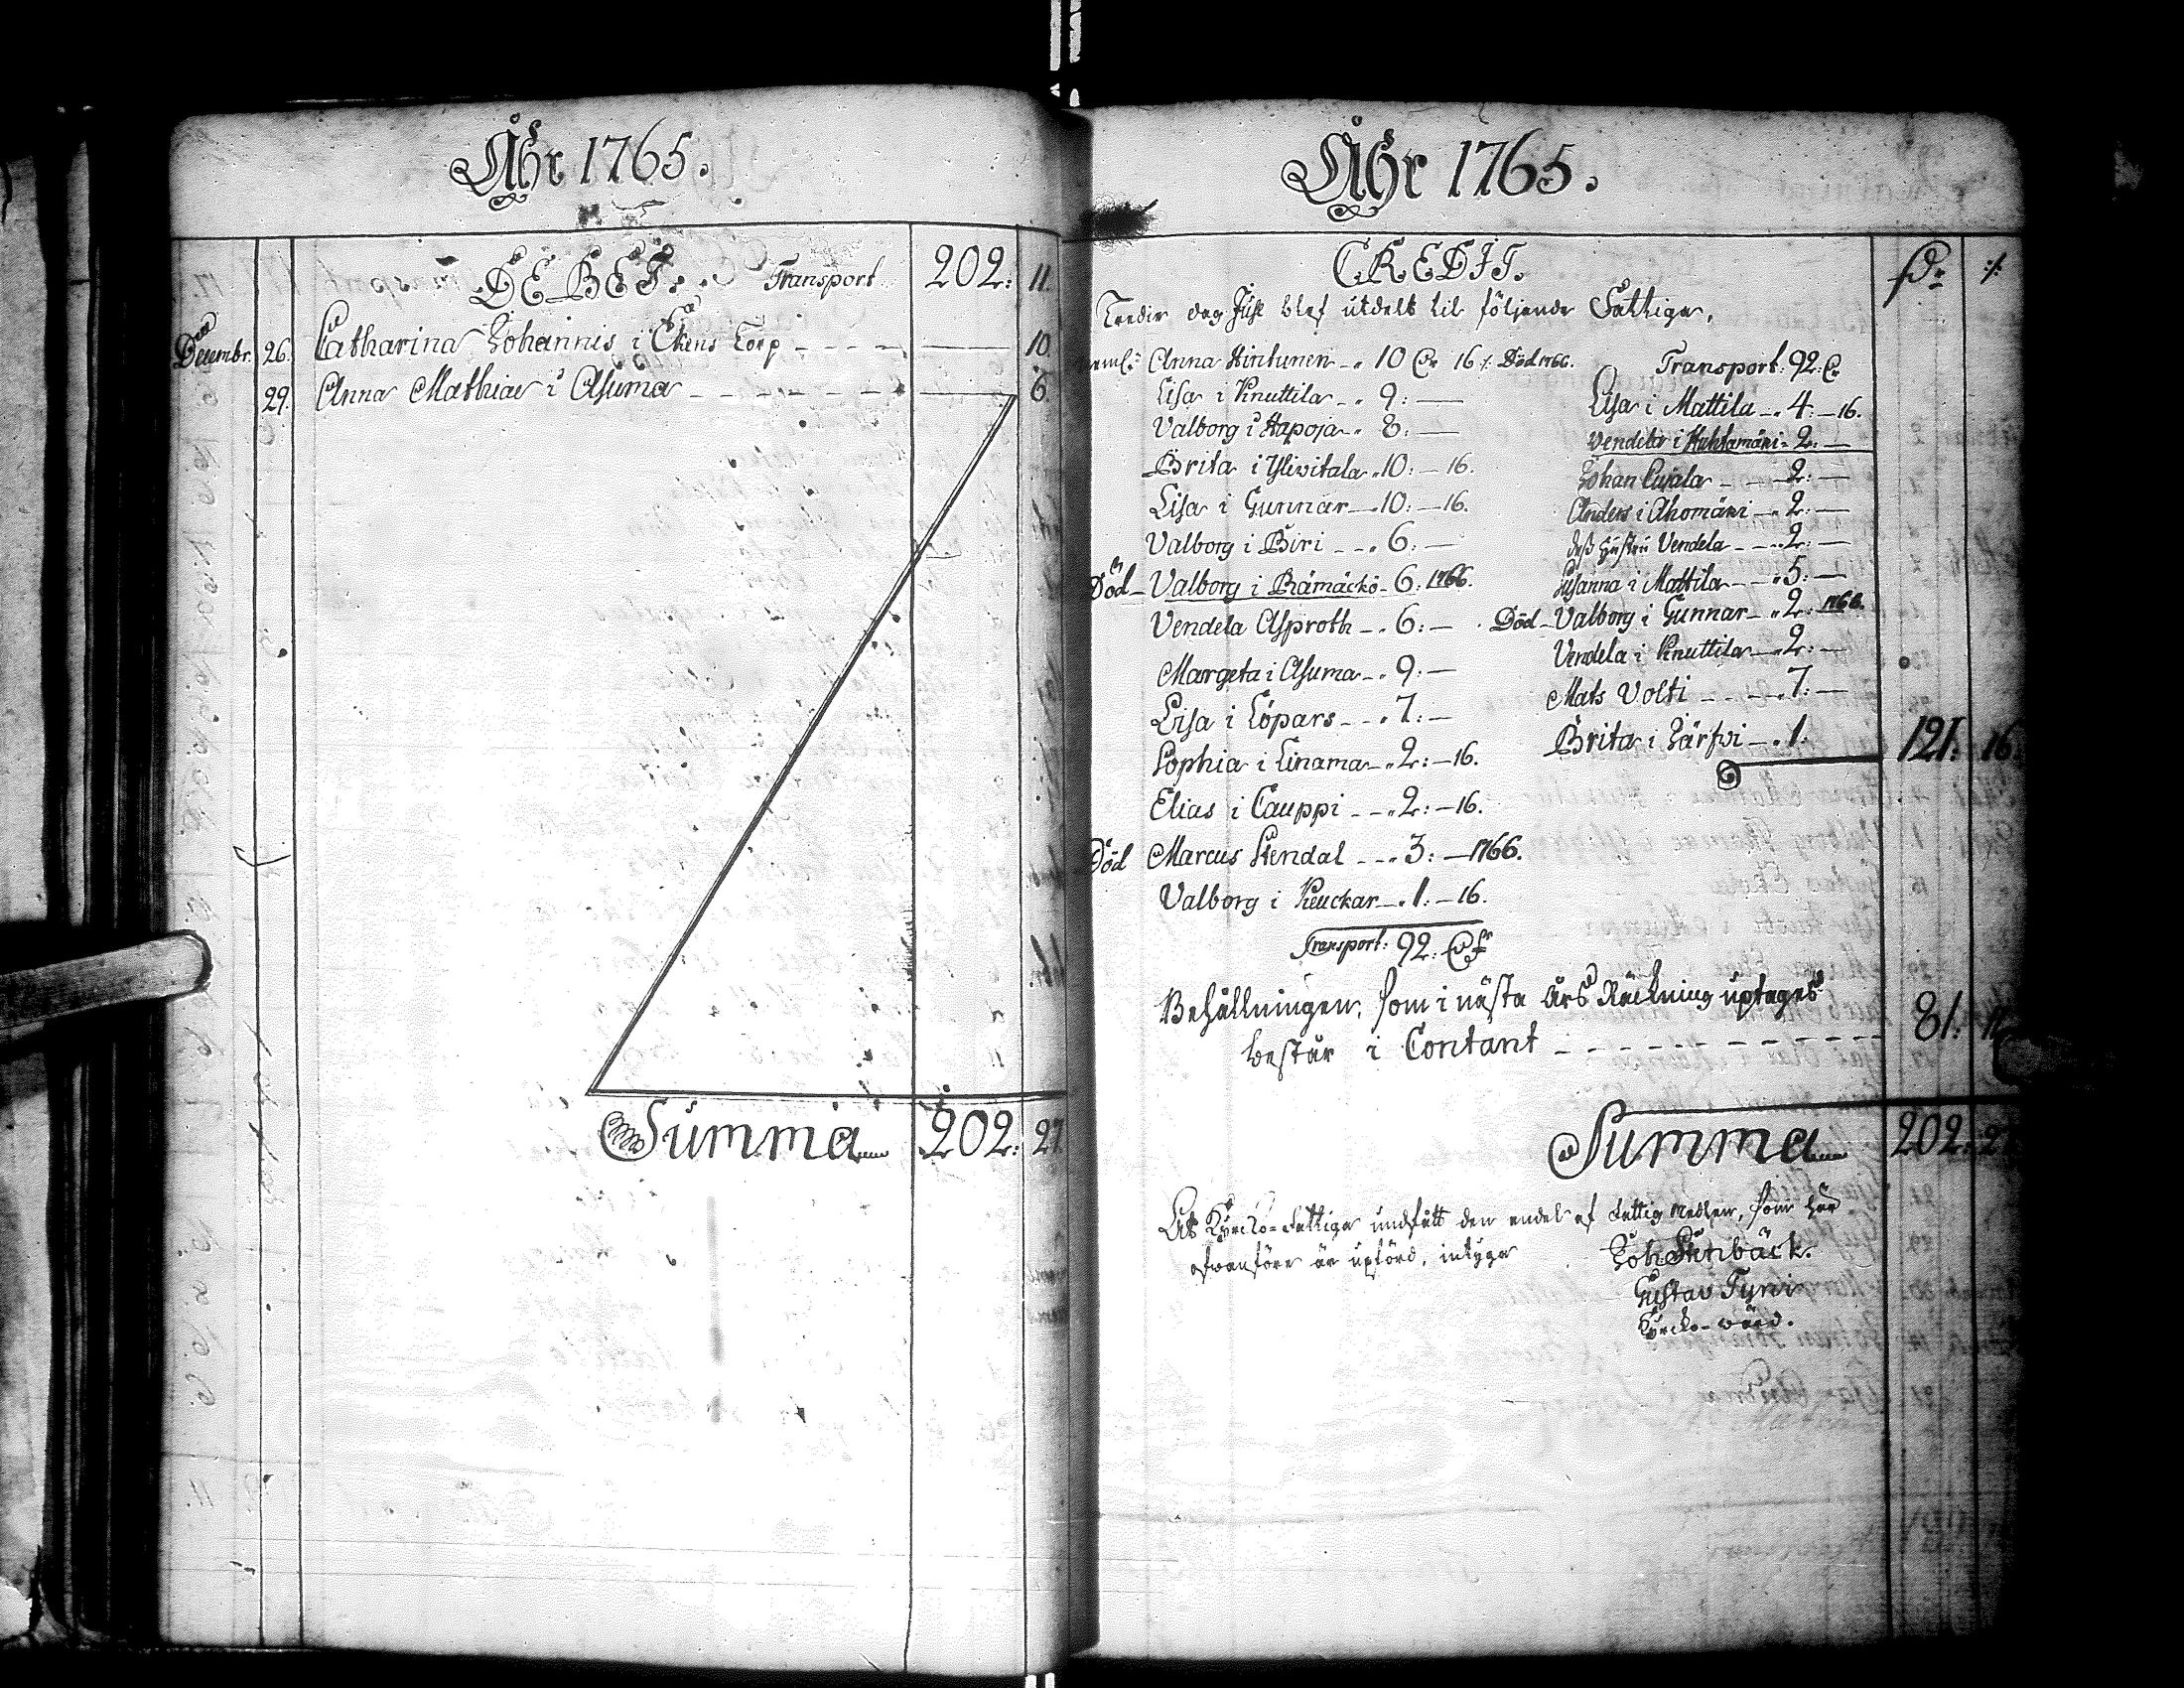 Åhr 1765.
DEBET. Transport 202: 11.
Decembr. 26. Catharina Johannis i Ekens Torp - - - - — 10.
29. Anna Mathiae i Asuma - - - - - - - — 6.
Summa 202: 27
Åhr 1765.
CREDIT. Sd. :/.
Tredie dag Juhl blef utdelt til följande Fattiga,
neml: Anna Hintunen -.. 10 Cr 16 :/. Död 1766.
Lisa i Knuttila -.. 9: —
Valborg i Hapoja -.. 8: —
Brita i Yliwitala .. 10: — 16.
Lisa i Gunnar — 10: — 16.
Valborg i Biri - - .. 6: —
Död - Valborg i Rämäckö - 6: 1766.
Vendela Asproth -.. 6: —
Margeta i Asuma -.. 9: —
Lisa i Löpars - - .. 7: —
Sophia i Linama -.. 2: — 16.
Elias i Cauppi - - .. 2: — 16.
Död Marcus Stendal - - .. 3: — 1766.
Valborg i Keuckar -.. 1: — 16.
Transport: 92: Cr
Transport: 92: Cr
Lisa i Mattila -.. 4: — 16.
Vendela i Huhtamäki - 2: —
Johan Cujala - - — 2: —
Anders i Ahomäki -.. 2: —
dess Hustru Vendela - - .. 2: —
Susanna i Mattila - - .. 5: —
Död - Valborg i Gunnar -.. 2: 1766.
Vendela i Knuttila — 2: —
Mats Volti - - - .. 7: —
Brita i Järfwi -.. 1: 121: 16.
Behållningen, som i nästa års Räckning uptages
består i Contant - - - - - - - - - - 81: 11
Summa 202: 27
At Kyrcko-Fattiga undfått den endel af Fattig Medlen, som här
ofwanföre är upförd, intyga Joh Stenbäck.
Gustav Tyni
Kyrcko-wärd.